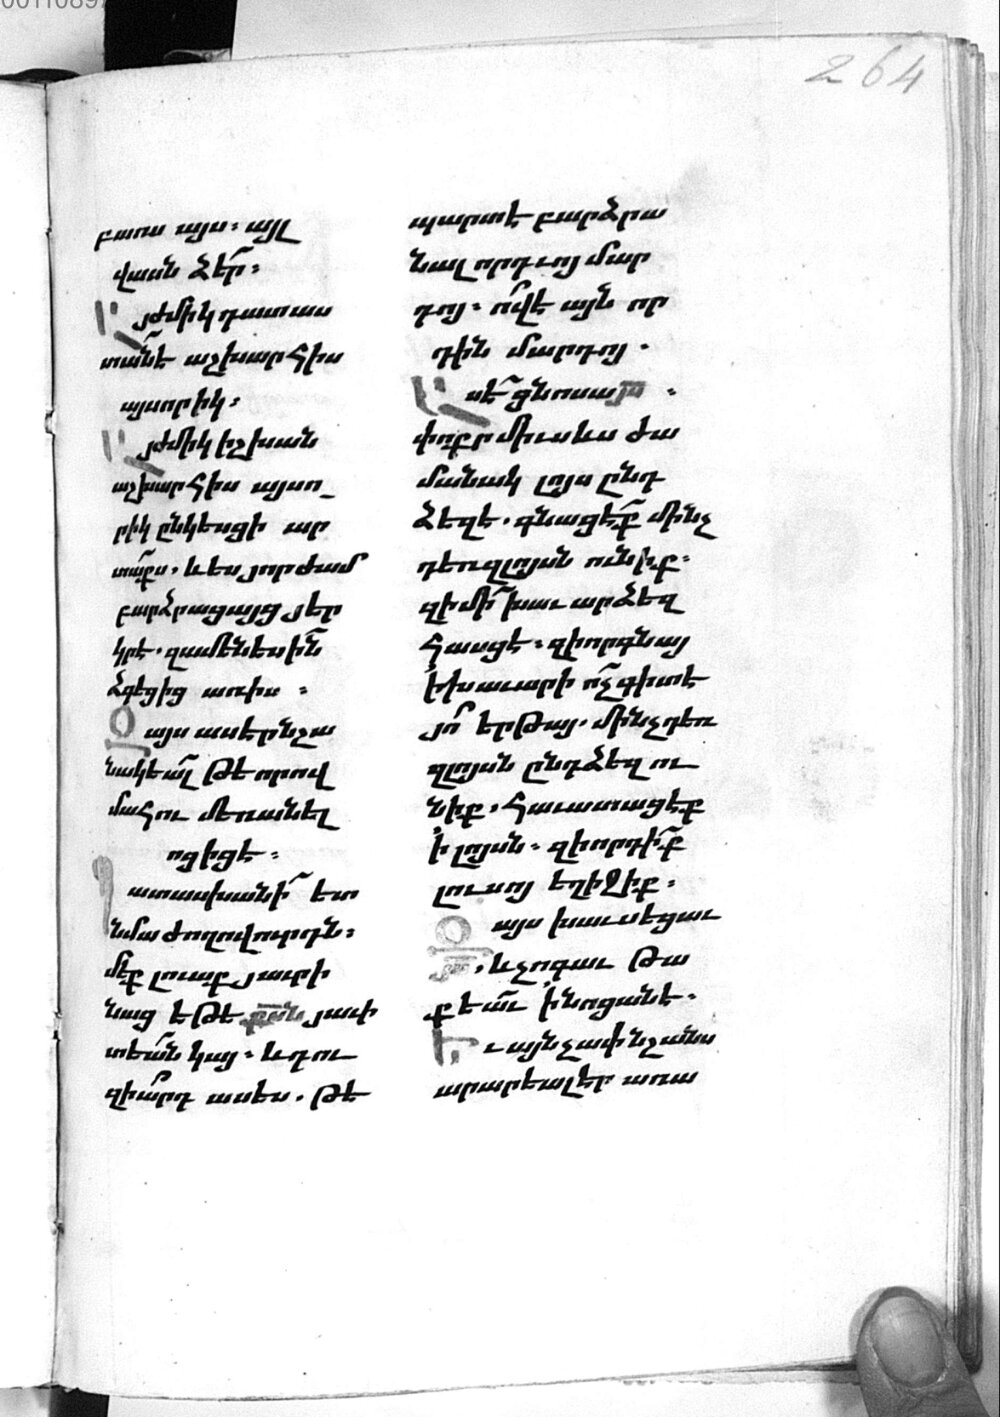 264
բառս այս։ այլ
վասն ձեր՜։
Այժմիկ դատաս
տա՜նէ աշխարհիս
այսորիկ։
Այժմիկ իշխան
աշխարհիս այսո
րիկ ընկեսցի ար
տա՜քս. և ես յորժամ
բարձրացայց յեր
կրէ. զամենեսին՜
ձգեցից առիս։
Զայս ասէր նշա
նակեա՜լ թե որով
մահու մեռանել
ոցիցէ։
Պատասխանի՜ ետ
նմա ժողովուրդն։
մէք լուաք յաւրի
նաց եթե քս՜ն յաւի
տեա՜ն կայ։ և դու
զիա՜րդ ասես. թե
պարտ է բարձրա
նալ որդւոյ մար
դոյ։ ո՜վ է այն որ
դին մարդոյ.
Ասէ՜ ցնոսա յս՜։
փոքր միւսևս ժա
մանակ լոյս ընդ
ձեզ է. գնացէ՜ք մինչ
դեռ զլոյսն ունիք։
զի մի՜ խաւար ձեզ
հասցէ։ զի որ գնայ
ի խաւարի ո՜չ գիտէ
յո՜ երթայ. մինչդեռ
զլոյսն ընդ ձեզ ու
նիք, հաւատացէք
ի լոյսն։ զի որդի՜ք
լուսոյ եղիջիք։
Զայս խաւսեցաւ
յս՜, և չոգաւ թա
քեա՜ւ ի նոցանէ։
Եւ այնչափ նշանս
արարեալ էր առա